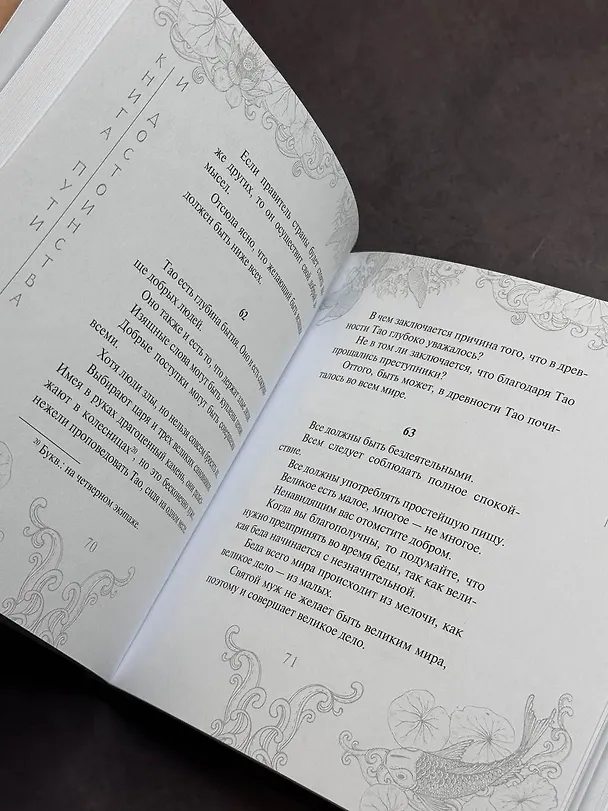 КНИГА ПУТИ
И ДОСТОИНСТВА
Если правитель страны будет
же других, то он осуществит свой добрый
мысел.
Отсюда ясно, что желающий быть
должен быть ниже всех.
62
Тао есть глубина бытия. Оно
ше добрых людей.
Оно также и есть то, что держат злые люди.
Изящные слова могут быть
Добрые поступки могут быть совершаемы
всеми.
Хотя люди злы, но нельзя совсем
Выбирают царя и трех великих сановников.
Имея в руках драгоценный камень, они
жают в колесницах²⁰, но это бесконечно хуже,
нежели проповедовать Тао, сидя на одном месте.
²⁰ Букв.: на четверном экипаже.
70
В чем заключается причина того, что в древ-
ности Тао глубоко уважалось?
Не в том ли заключается, что благодаря Тао
прощались преступники?
Оттого, быть может, в древности Тао почи-
талось во всем мире.
63
Все должны быть бездеятельными.
Всем следует соблюдать полное спокой-
ствие.
Все должны употреблять простейшую пищу.
Великое есть малое, многое — не многое.
Ненавидящим вас отомстите добром.
Когда вы благополучны, то подумайте, что
нужно предпринять во время беды, так как вели-
кая беда начинается с незначительной.
Беда всего мира происходит из мелочи, как
великое дело — из малых.
Святой муж не желает быть великим мира,
поэтому и совершает великое дело.
71